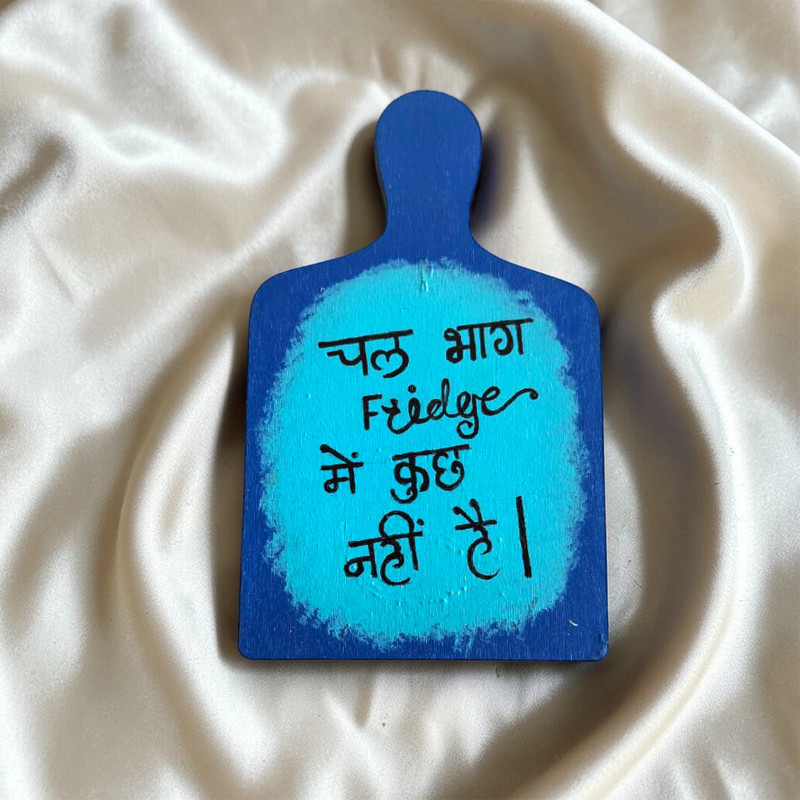 चल भाग
Fridge
में कुछ
नहीं है।